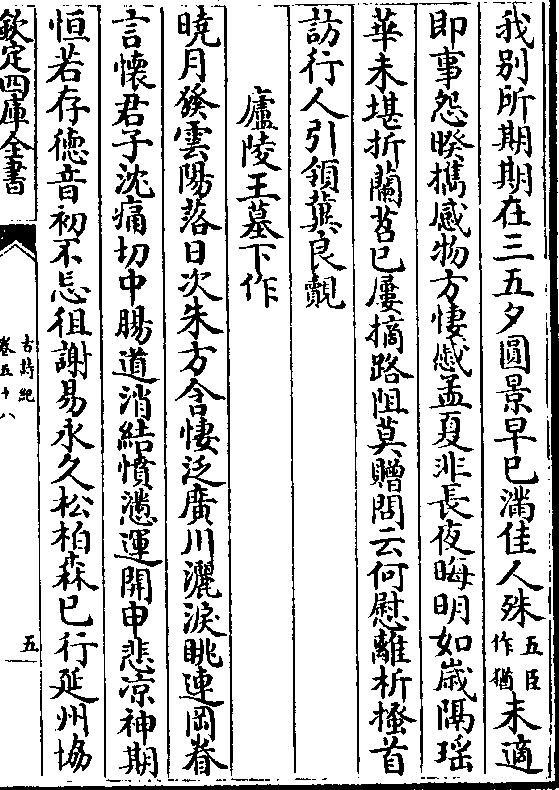 我别所期期在三五夕圓景早已滿佳人殊五臣作猶未適
即事怨睽攜感物方悽慼孟夏非長夜晦明如歲隔瑶
華未堪折蘭苕已屢摘路阻莫贈問云何慰離析搔首
訪行人引領冀良覿
廬陵王墓下作
曉月發雲陽落日次朱方含悽泛廣川灑淚眺連岡眷
言懷君子沈痛切中腸道消結憤懣運開申悲凉神期
恒若存德音初不忘徂謝易永久松柏森已行延州協
欽定四庫全書
古詩紀
卷五十八
五